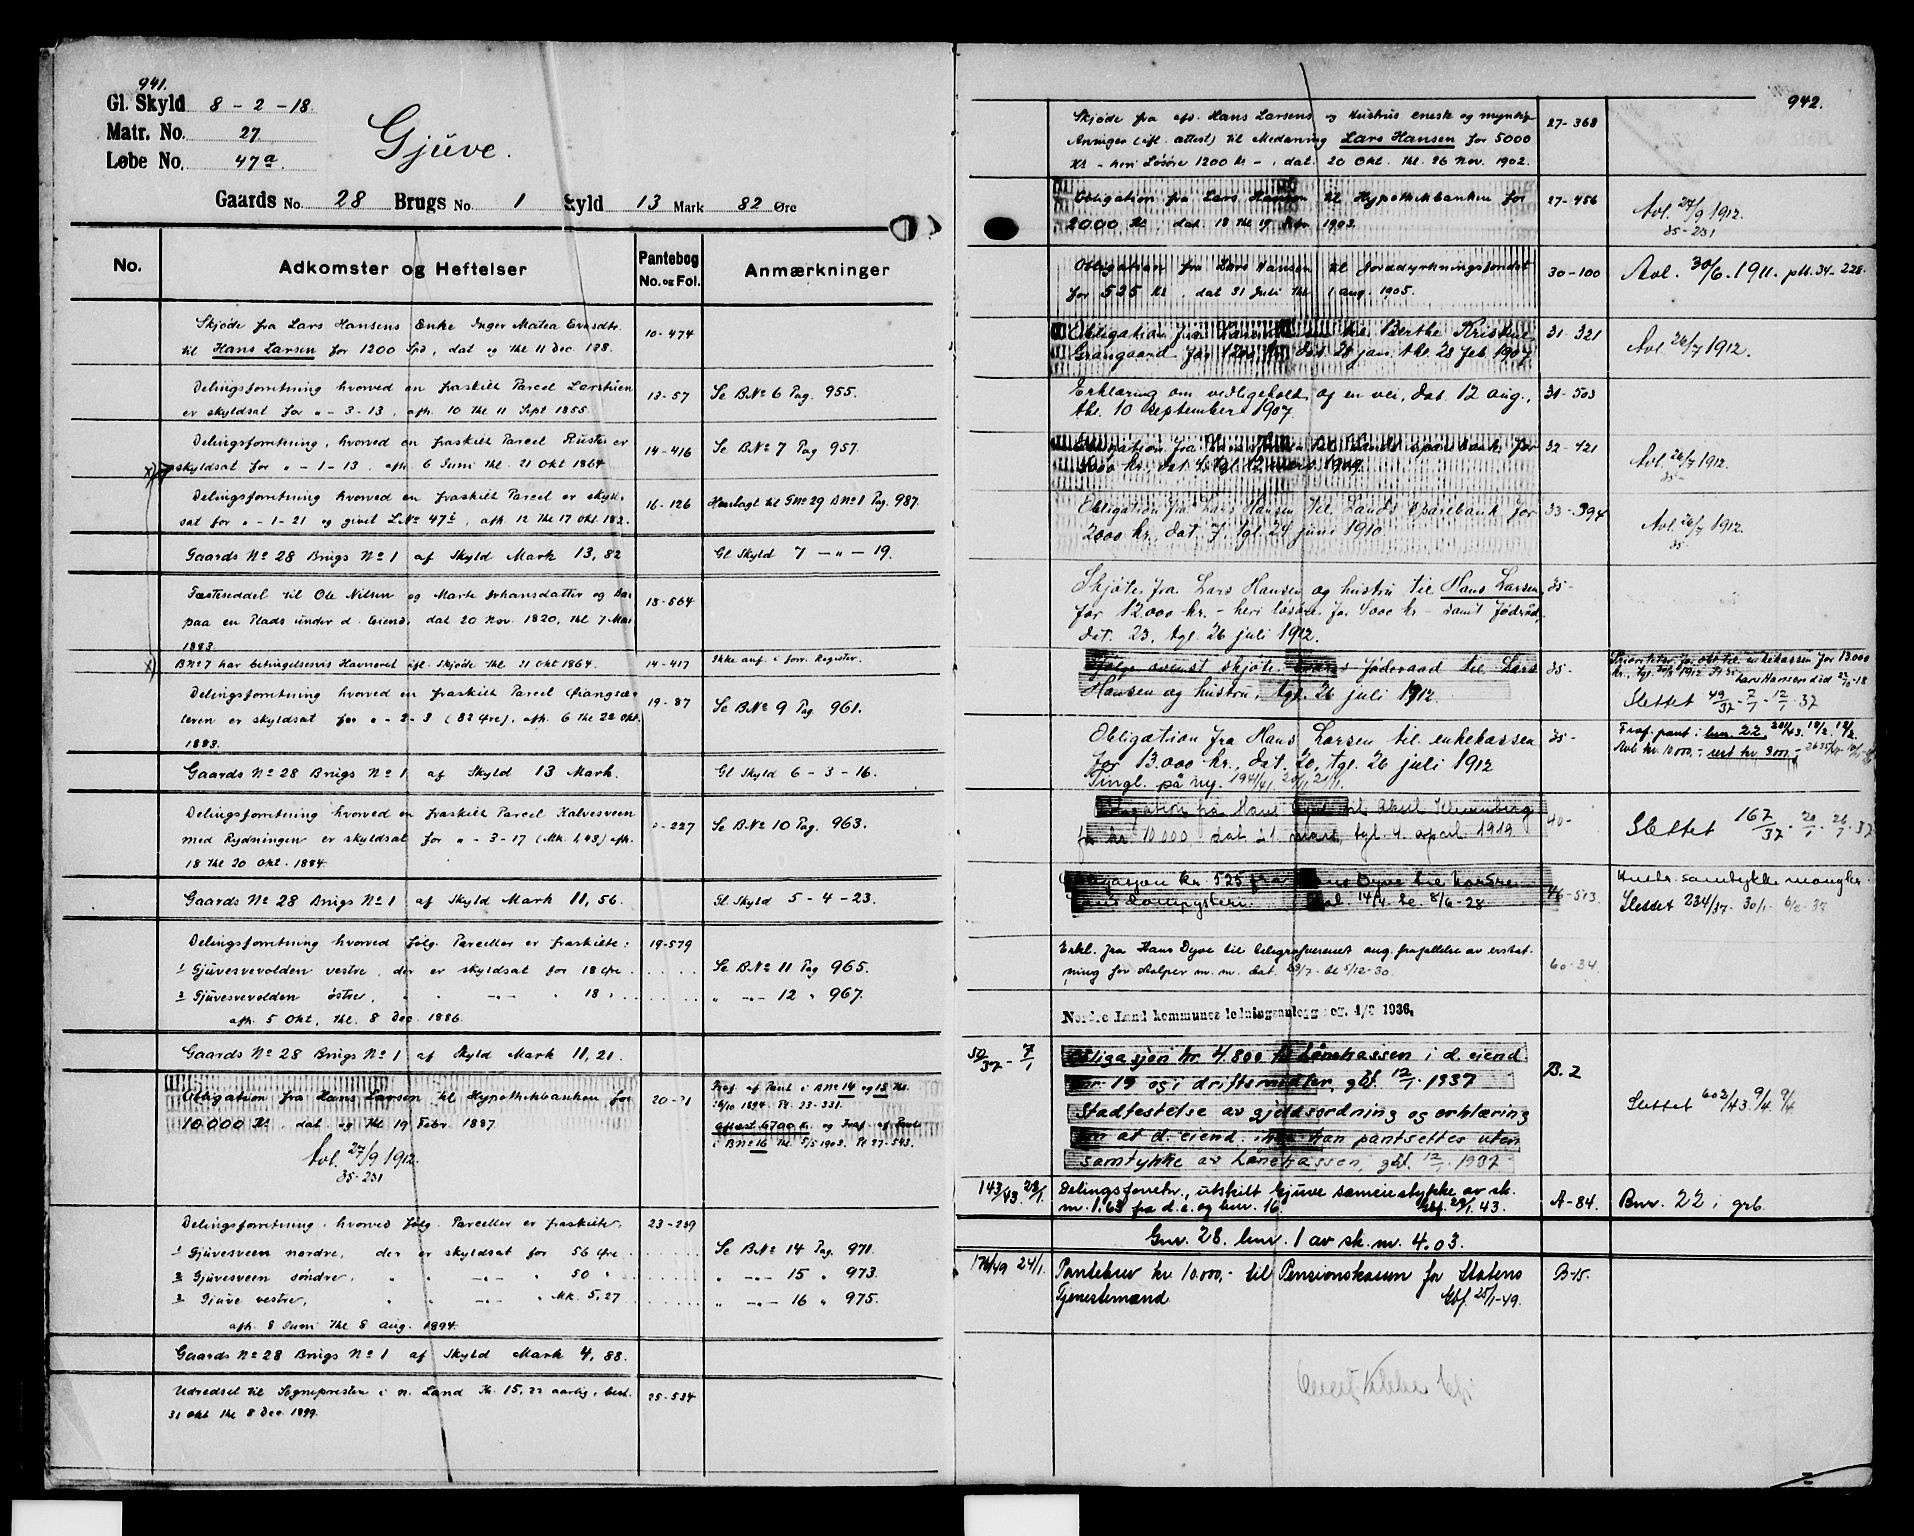 941.
Gl. Skyld 8 - 2 - 18.
Matr. No. 27
Løbe No. 47a.
Gjüve.
Gaards No. 28 Brugs No. 1 Skyld 13 Mark 82 Øre
No. Adkomster og Heftelser Pantebog No. og Fol. Anmærkninger
Skjøde fra Lars Hansens Enke Inger Matea Evensdtr. 10-474
til Hans Larsen for 1200 Spd, dat og thl 11 Dec.
Delingsforretning hvorved en fraskilt Parcel Larstuen 13-57 Se B.No 6 Pag. 955.
er skyldsat for " - 3 - 13, afh. 10 thl 11 Sept 1855.
Delingsforretning, hvorved en fraskilt Parcel Rusten er 14-416 Se B.No 7 Pag 957.
x) skyldsat for " - 1 - 13, afh. 6 Juni thl. 21 Okt 1864.
Delingsforretning hvorved en fraskilt Parcel er skyld- 16-126 Henlagt til GNo 29 BNo 1 Pag. 987.
sat for " - 1 - 21 og givet LNo 47b, afh. 12 thl 17 Okt.
Gaards No 28 Brugs No 1 af Skyld Mark 13,82 Gl Skyld 7 - " - 19.
Fæsteseddel til Ole Nilsen og Marte Johansdatter og 18-564
paa en Plads under d. Eiend. dat 20 Nov. 1820, thl 7 Mai
1883.
x) BNo 7 har betingelsesvis Havneret ifl. Skjøde thl 21 Okt 1864. 14-417 Ikke anf. i forr. Register.
Delingsforretning hvorved en fraskilt Parcel 19-87 Se B No 9 Pag. 961.
er skyldsat for " - 2 - 3 (82 Øre), afh. 6 thl 22 Okt.
1883.
Gaards No 28 Brugs No 1 af Skyld 13 Mark. Gl Skyld 6 - 3 - 16.
Delingsforretning hvorved en fraskilt Parcel Kalvesveen -227 Se B.No 10 Pag. 963.
med Rydningen er skyldsat for " - 3 - 17 (Mk 1,43) afh.
18 thl 20 Okt. 1884.
Gaards No 28 Brugs No 1 af Skyld Mark 11,56. Gl Skyld 5 - 4 - 23.
Delingsforretning hvorved følg. Parceller er fraskilte: 19-579
1 Gjüvesvevolden vestre, der er skyldsat for 18 Øre. Se B No 11 Pag 965.
2 Gjüvesvevolden østre, " " -"- " 18 " " -"- 12 " 967.
afh. 5 Okt, thl. 8 Dec. 1886.
Gaards No 28 Brugs No 1 af Skyld Mark 11,21.
Obligation fra Hans Larsen til Hypothekbanken for 20-71 Fraf. af Pant i BNo 14 og 15 thl.
10.000 Kr, dat. og thl 19 Febr. 1887. 26/10 1894. Pt. 23-331.
Avl. 27/9 1912. Kvitt. 6700 Kr. og Fraf. af Pant
35-231 i BNo 16 thl. 5/5 1903. Pt 27-543.
Delingsforretning, hvorved følg. Parceller er fraskilte. 23-239
1 Gjüvesveen nordre, der er skyldsat for 56 Øre. Se B No 14 Pag. 971.
2 Gjüvesveen søndre, " " -"- " 50 " " -"- 15 " 973.
3 Gjüve vestre, " " -"- " Mk. 5,27 " -"- 16 " 975.
afh. 8 Juni thl 8 Aug. 1894.
Gaards No 28 Brugs No 1 af Skyld Mark 4,88.
Udredsel til Sognepresten i n. Land Kr. 15,22 aarlig, best. 25-534
31 Okt thl 8 Dec. 1899.
942.
Skjøde fra afd. Hans Larsens og Hustrus eneste og myndige 27-368
Arvinger (ifl. attest) til Medarving Lars Hansen for 5000
Kr - heri Løsøre 1200 Kr -, dat. 20 Okt. thl. 26 Nov. 1902.
Obligation fra Lars Hansen til Hypothekbanken for 27-456 Avl. 27/9 1912.
2000 Kr, dat 18 thl 19 1903. 35-231
Obligation fra Lars Hansen til Jorddyrkningsfondet 30-100 Avl. 30/6. 1911. ptb. 34-228.
for 525 Kr, dat 31 Juli thl 1 aug. 1905.
Obligation fra Lars Hansen til Berthe Kristine 31-321 Avl 26/7 1912.
Grangaard for 1200 kr. dat. 28 jan. thl. 28 feb 1907.
Erklæring om vedligehold af en vei, dat. 12 aug., 31-503
thl. 10 september 1907.
Obligation fra Lars Hansen til Lands sparebank for 32-421 Avl. 26/7 1912.
kr., dat. 4. tgl 12 mars 1909. 35-
Obligation fra Lars Hansen til Lands sparebank for 33-394 Avl. 26/7 1912.
2000 kr., dat. 7. tgl. 24 juni 1910. 35-
Skjøte fra Lars Hansen og hustru til Hans Larsen 35-
for 12.000 kr. - heri løsøre for 4000 kr - samt føderåd,
dat. 23. tgl. 26 juli 1912.
Ifølge ovenst. skjøte føderaad til Lars 35- Prioritet for obl. til enkekassen for 13.000
Hansen og hustru, tgl. 26 juli 1912. Lars Hansen død
Slettet 49/37 - 7/1 - 12/1 - 37
Obligation fra Hans Larsen til enkekassen 35- Fraf. pant i bnr. 22
for 13.000 kr., dat. 20, tgl. 26 juli 1912 Avl kr. 10.000,- rest kr. 3000,-
Tingl. på ny. 1941/41
Obligation fra Hans til Aksel 40- Slettet 167/37 - 20/1 - 26/1 - 37
for kr. 10000 dat 21 mars, tgl. 4. april 1919
Obligasjon kr. 525 fra Hans Dyve til 46-513 Hustr. samtykke mangler.
dat 14/4. tl. 8/6-28 Slettet 234/37 - 30/1 - 6/2 - 37
Erkl. fra Hans Dyve til telegrafvesenet ang. frafallelse av erstat- 60-34
ning for stolper m. m. dat. 28/7 - tl 5/12-30.
Nordre Land kommunes ledningsanlegg 1936.
50/37 - 7/1 Obligasjon kr. 4.800 til Lånekassen i d. eiend B. 2 Slettet 602/43 9/4 9/4
bnr. 19 og i driftsmidler, gbf. 12/1. 1937
Stadfestelse av gjeldsordning og erklæring
om at d. eiend. ikke kan pantsettes uten
samtykke av Lånekassen, gbf. 12/1. 1937
143/43 28/1. Delingsforretn., utskilt Gjuve sameiestykke av sk. A-84. Bnr. 22 i grb.
m. 1.63 fra d. e. og bnr. 16. Gbf. 29/1. 43.
Gnr. 28. bnr. 1 av sk. m. 4.03.
176/49 24/1. Pantebrev kr 10.000,- til Pensjonskassen for Statens B-15.
Tjenestemænd Gbf. 25/1-49.